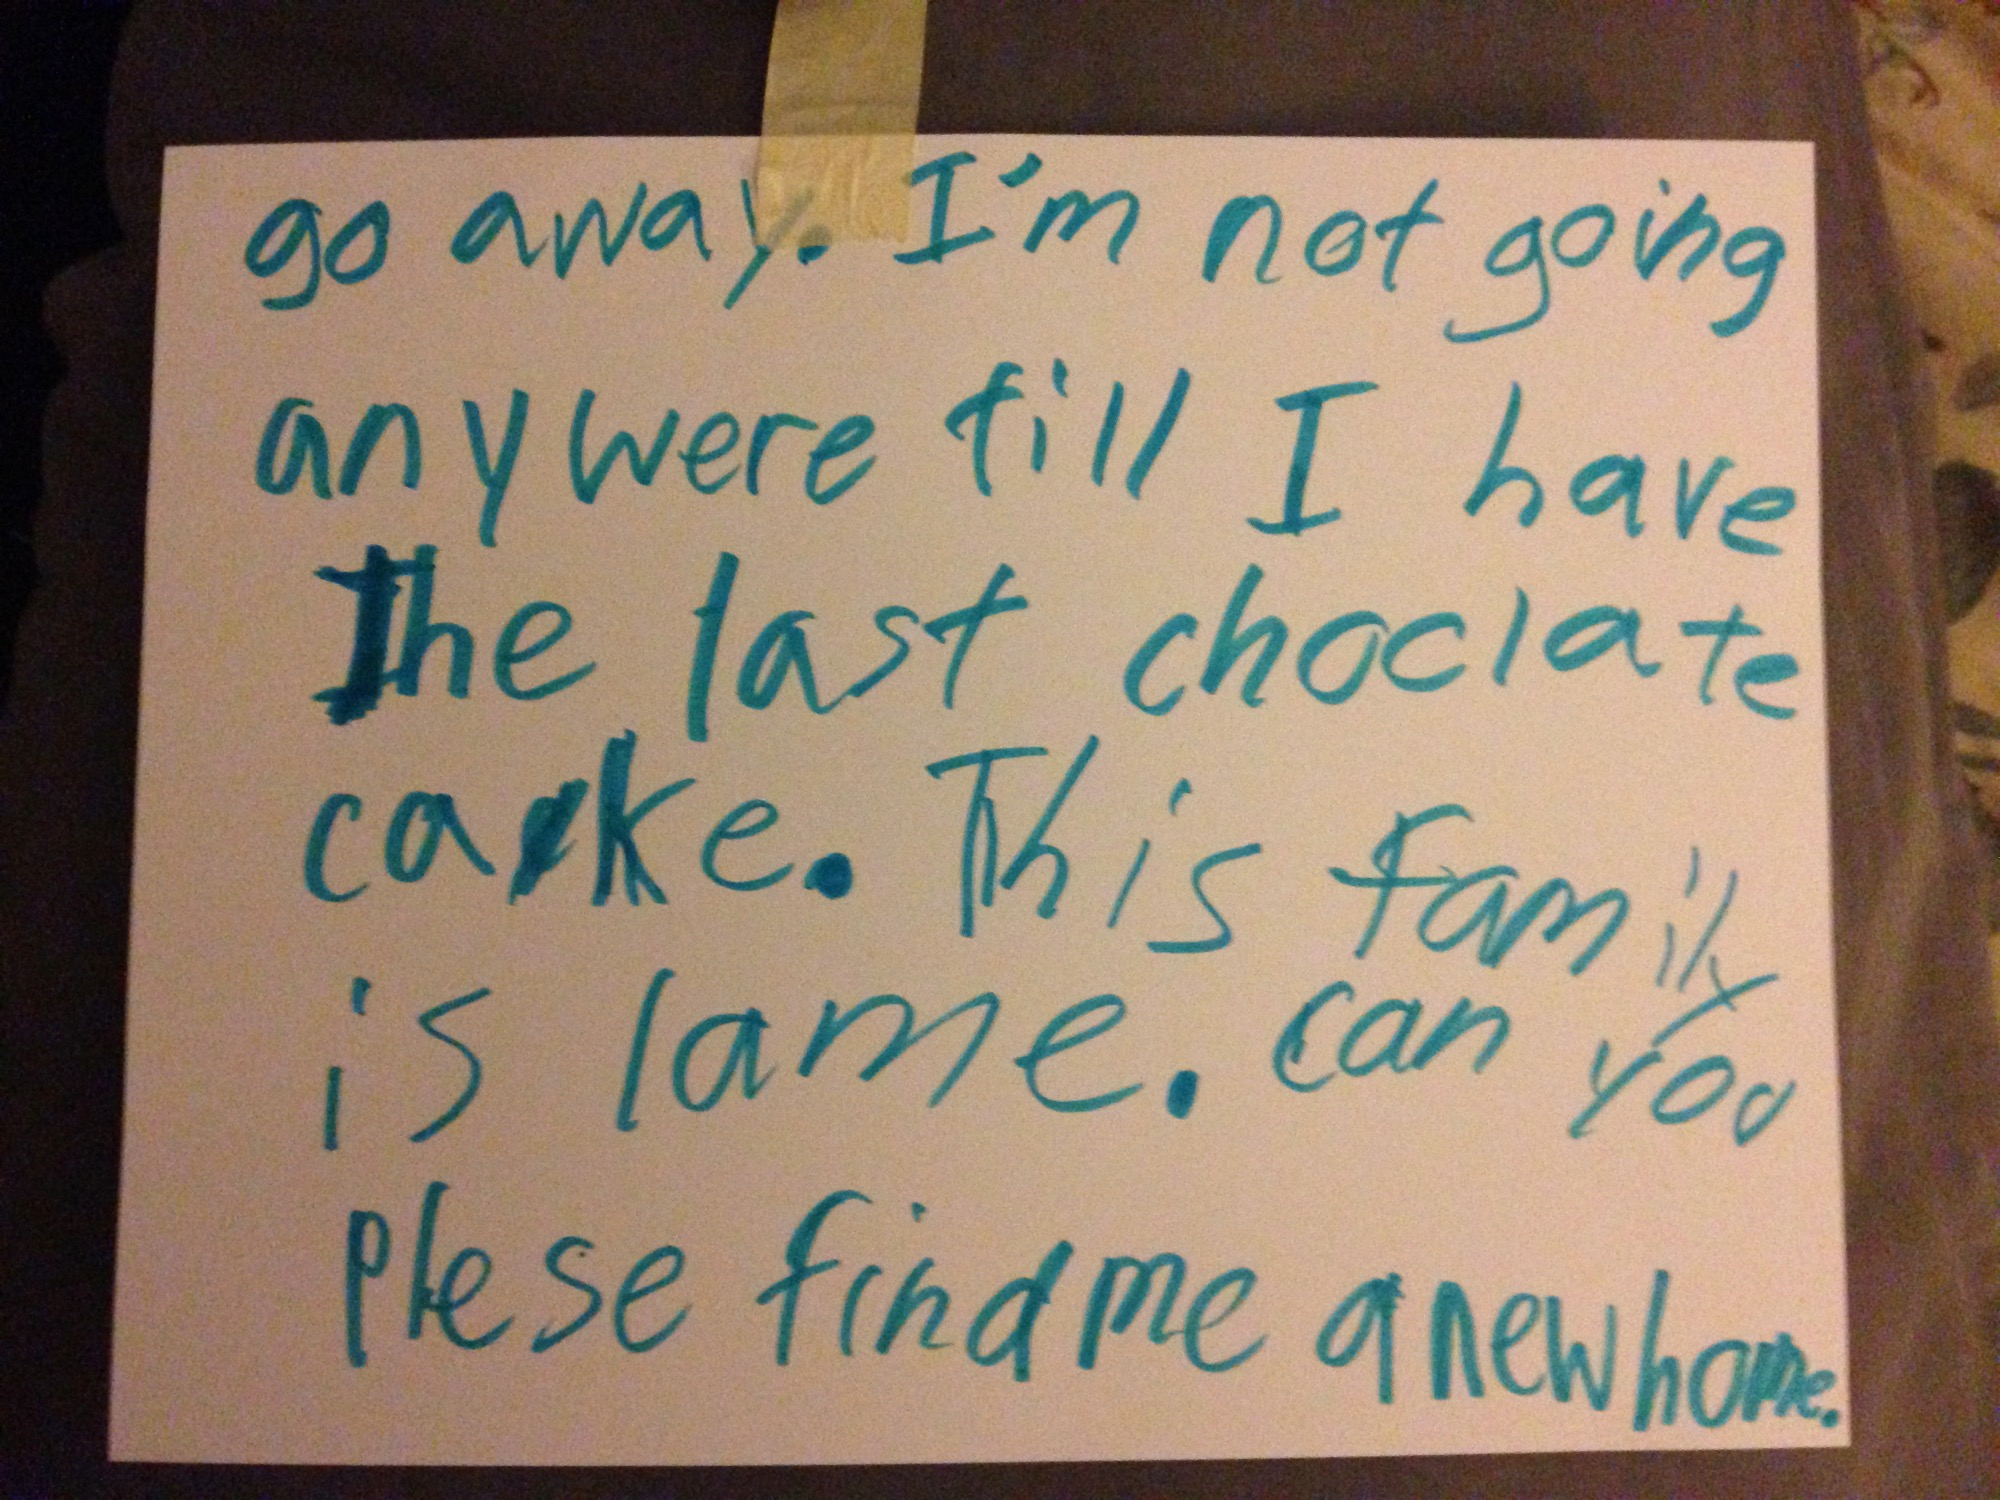 go away. I'm not going
anywere till I have
The last choclate
cake. This family
is lame. can you
plese find me a new home.